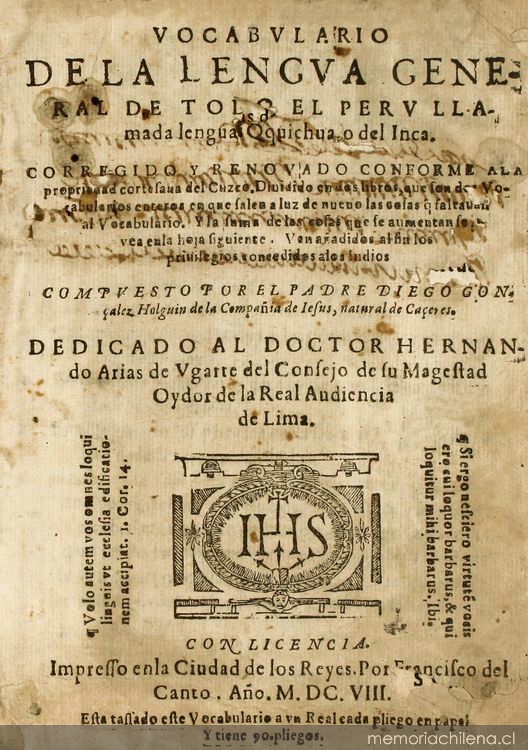 VOCABVLARIO
DE LA LENGVA GENE-
RAL DE TODO EL PERV LLA-
mada lengua Qquichua, o del Inca.
CORREGIDO Y RENOVADO CONFORME ALA
propriedad cortesana del Cuzco. Diuidido en dos libros, que son dos Vo-
cabularios enteros en que salen a luz de nueuo las cosas q̃ faltauan
al Vocabulario. Y la suma de las cosas que se aumentan se
vea enla hoja siguiente. Van añadidos al fin los
priuilegios concedidos alos Indios
COMPVESTO POR EL PADRE DIEGO GON-
çalez Holguin de la Compañia de Iesus, natural de Caçeres.
DEDICADO AL DOCTOR HERNAN-
do Arias de Vgarte del Consejo de su Magestad
Oydor de la Real Audiencia
de Lima.
¶ Volo autem vos omnes loqui
linguis vt ecclesia edificatio-
nem accipiat. 1. Cor. 14.
IHS
¶ Si ergo nesciero virtutē vocis
ero cui loquor barbarus, & qui
loquitur mihi barbarus. Ibi.
CON LICENCIA.
Impresso enla Ciudad de los Reyes. Por Francisco del
Canto. Año. M. DC. VIII.
Esta tassado este Vocabulario a vn Real cada pliego en papel
Y tiene 90. pliegos.
memoriachilena.cl